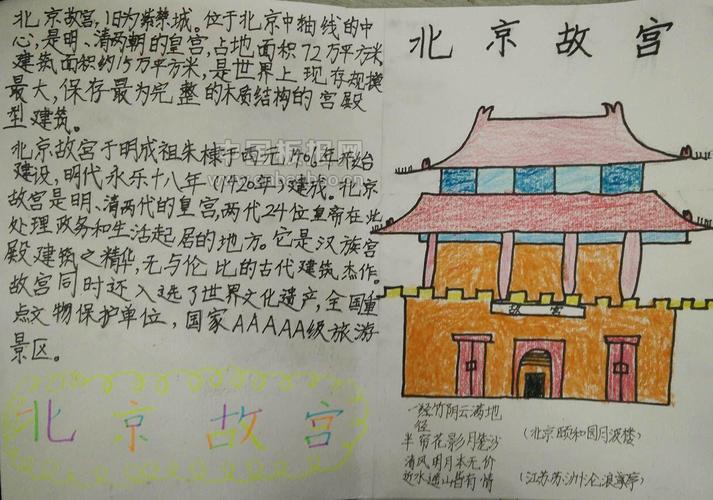 北京故宫，旧为紫禁城。位于北京中轴线的中
心，是明、清两朝的皇宫，占地面积72万平方米
建筑面积约15万平方米，是世界上现存规模
最大，保存最为完整的木质结构的宫殿
型建筑。
北京故宫于明成祖朱棣于西元1406年开始
建设，明代永乐十八年（1420年）建成。北京
故宫是明、清两代的皇宫，两代24位皇帝在此
处理政务和生活起居的地方。它是汉族宫
殿建筑之精华，无与伦比的古代建筑杰作。
故宫同时还入选了世界文化遗产，全国重
点文物保护单位，国家AAAAA级旅游
景区。
北京故宫
北京故宫
故宫
一径竹阴云满地
径
半帘花影月笼沙
（北京颐和园月波楼）
清风明月本无价
近水远山皆有情
（江苏苏州沧浪亭）